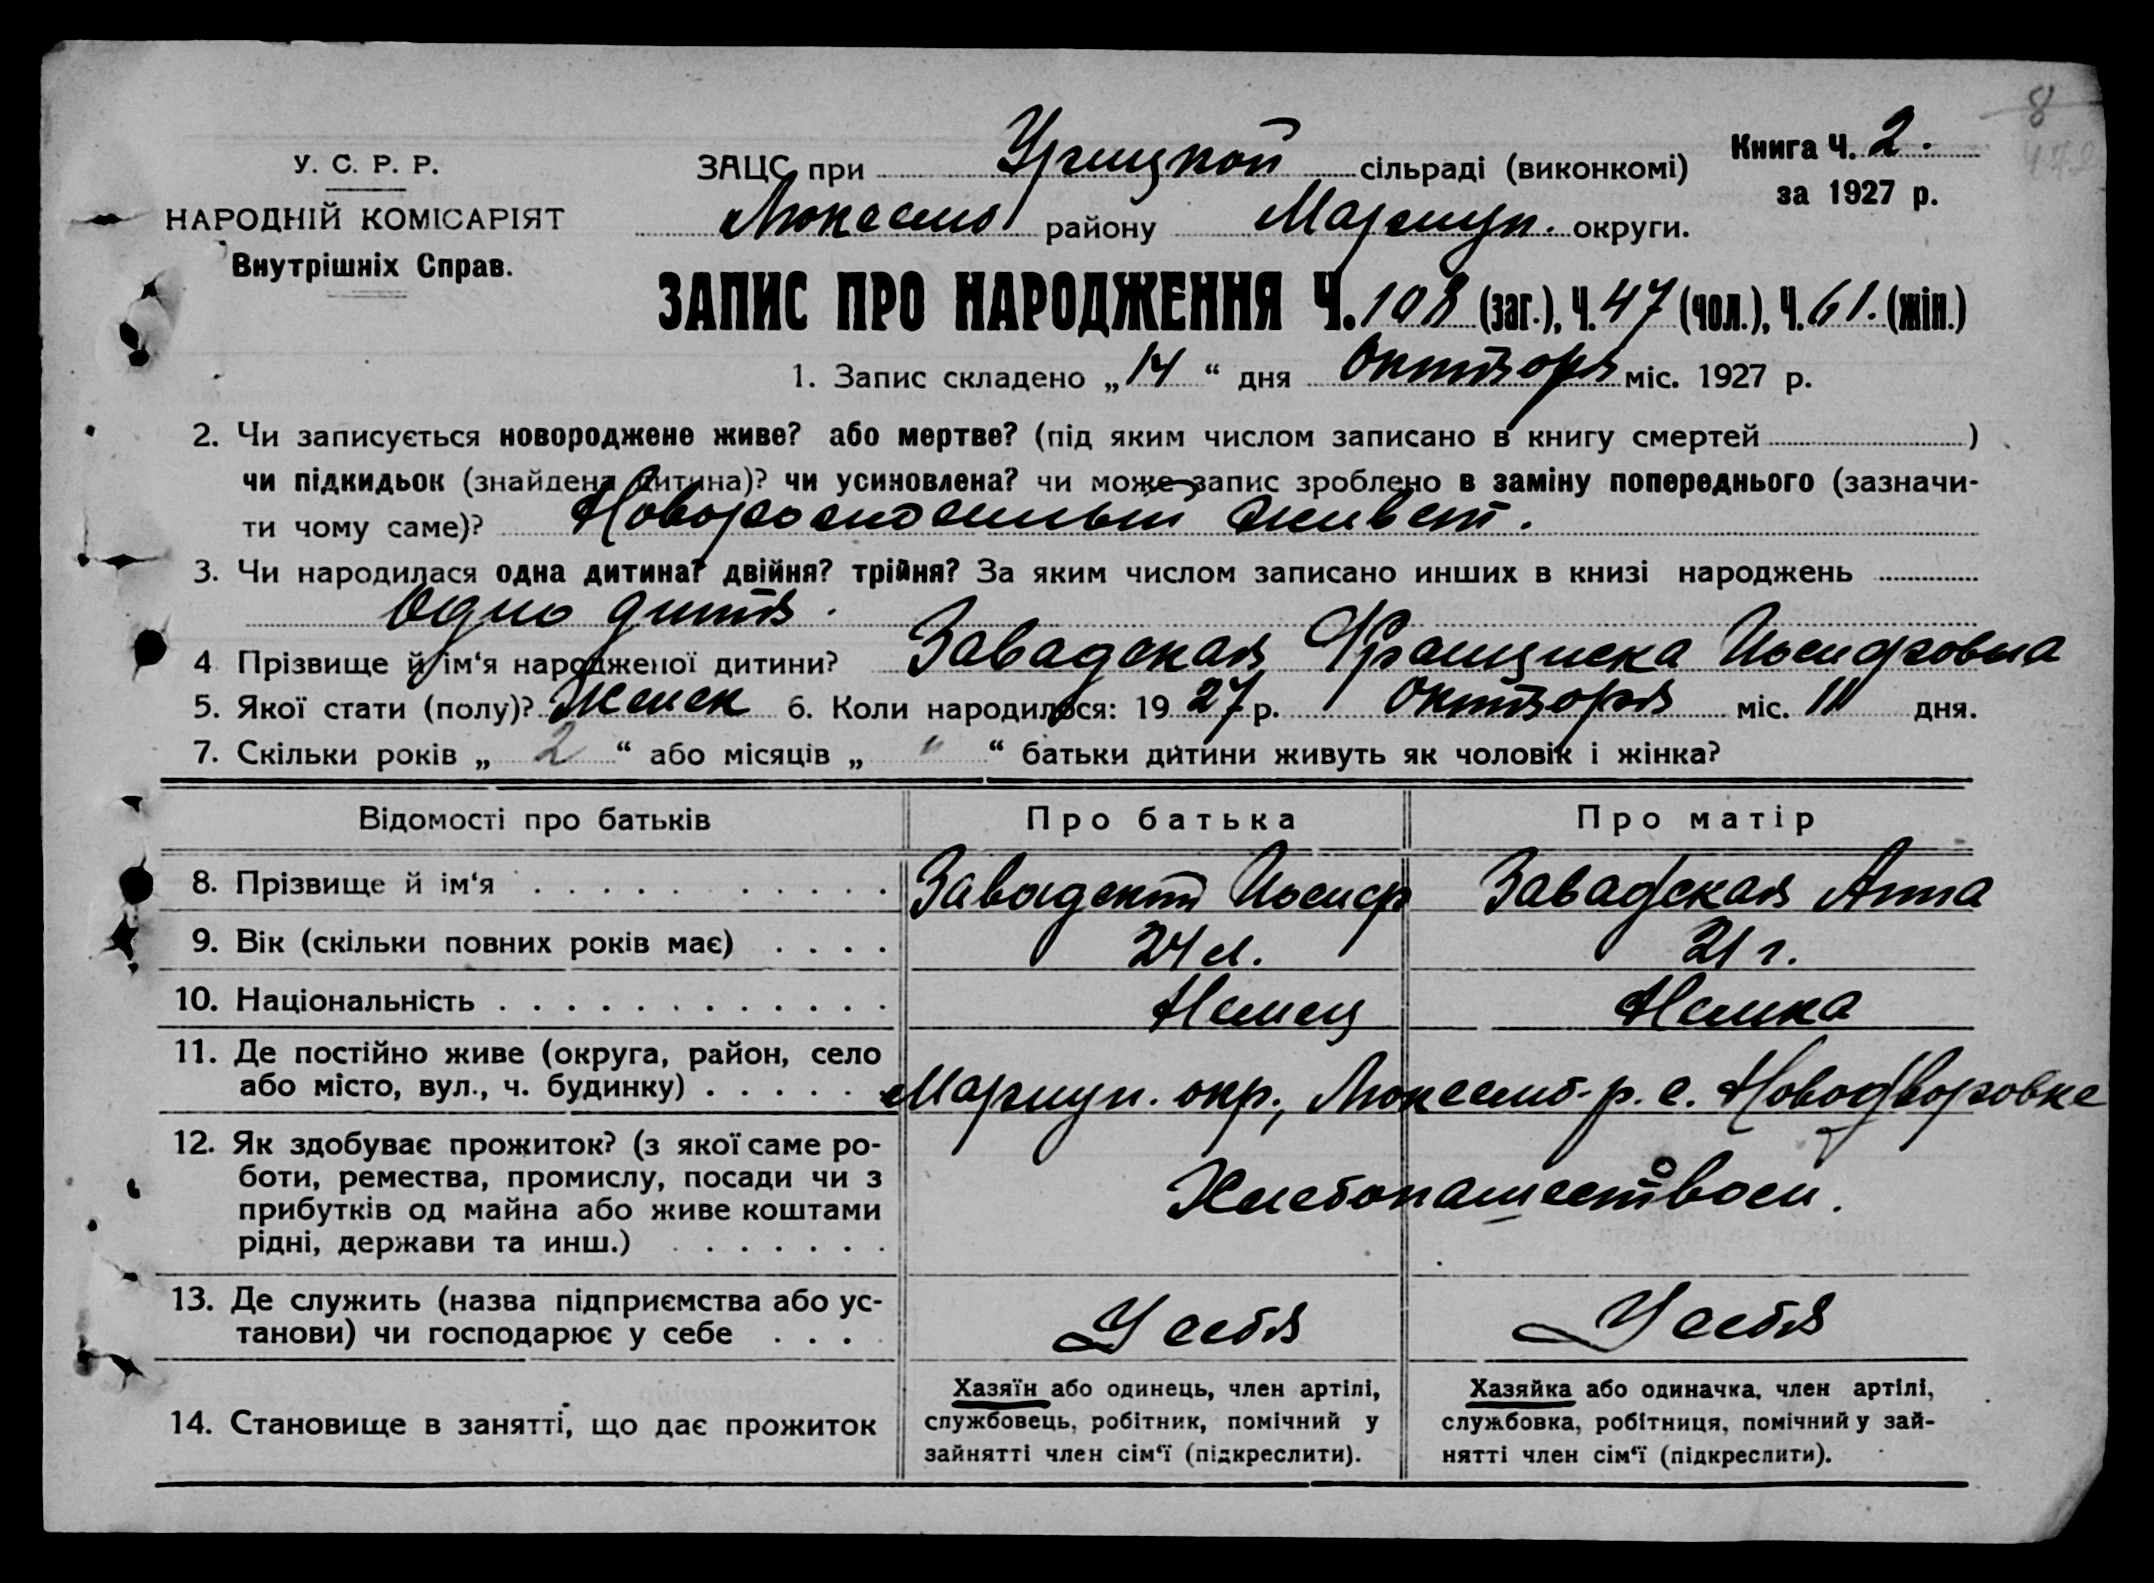 8
У. С. Р. Р.
НАРОДНІЙ КОМІСАРІЯТ
Внутрішніх Справ.
ЗАЦС при Урицкой сільраді (виконкомі)
Люксемб району Мариуп. округи.
Книга Ч. 2.
за 1927 р.
ЗАПИС ПРО НАРОДЖЕННЯ Ч. 108 (заг.), Ч. 47 (чол.), Ч. 61. (жін.)
1. Запис складено „14“ дня Октября міс. 1927 р.
2. Чи записується новороджене живе? або мертве? (під яким числом записано в книгу смертей )
чи підкидьок (знайдена дитина)? чи усиновлена? чи може запис зроблено в заміну попереднього (зазначи-
ти чому саме)? Новорожденный живет.
3. Чи народилася одна дитина? двійня? трійня? За яким числом записано инших в книзі народжень
Одно дитя.
4 Прізвище й ім‘я народженої дитини? Завадская Франциска Иосифовна
5. Якої стати (полу)? Женск 6. Коли народилося: 1927 р. Октября міс. 11 дня.
7. Скільки років „ 2 “ або місяців „ " “ батьки дитини живуть як чоловік і жінка?
Відомості про батьків Про батька Про матір
8. Прізвище й ім‘я Завадский Иосиф Завадская Анна
9. Вік (скільки повних років має) 24 л. 21 г.
10. Національність Немец Немка
11. Де постійно живе (округа, район, село
або місто, вул., ч. будинку) Мариуп. окр., Люксемб. р. с. Новодворовке
12. Як здобуває прожиток? (з якої саме ро-
боти, ремества, промислу, посади чи з
прибутків од майна або живе коштами
рідні, держави та инш.) Хлебопашеством.
13. Де служить (назва підприємства або ус-
танови) чи господарює у себе У себя У себя
14. Становище в занятті, що дає прожиток
Хазяїн або одинець, член артілі,
службовець, робітник, помічний у
зайнятті член сім‘ї (підкреслити).
Хазяйка або одиначка, член артілі,
службовка, робітниця, помічний у зай-
нятті член сім‘ї (підкреслити).